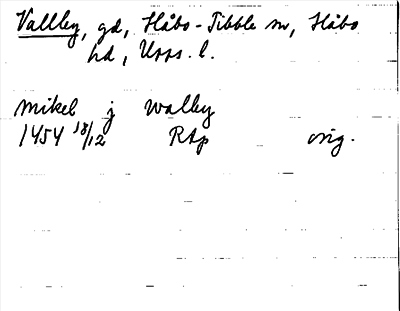 Vallley, gd, Håbo-Tibble sn, Håbo
hd, Upps. l.
mikel j walley
1454 18/12 RAp orig.